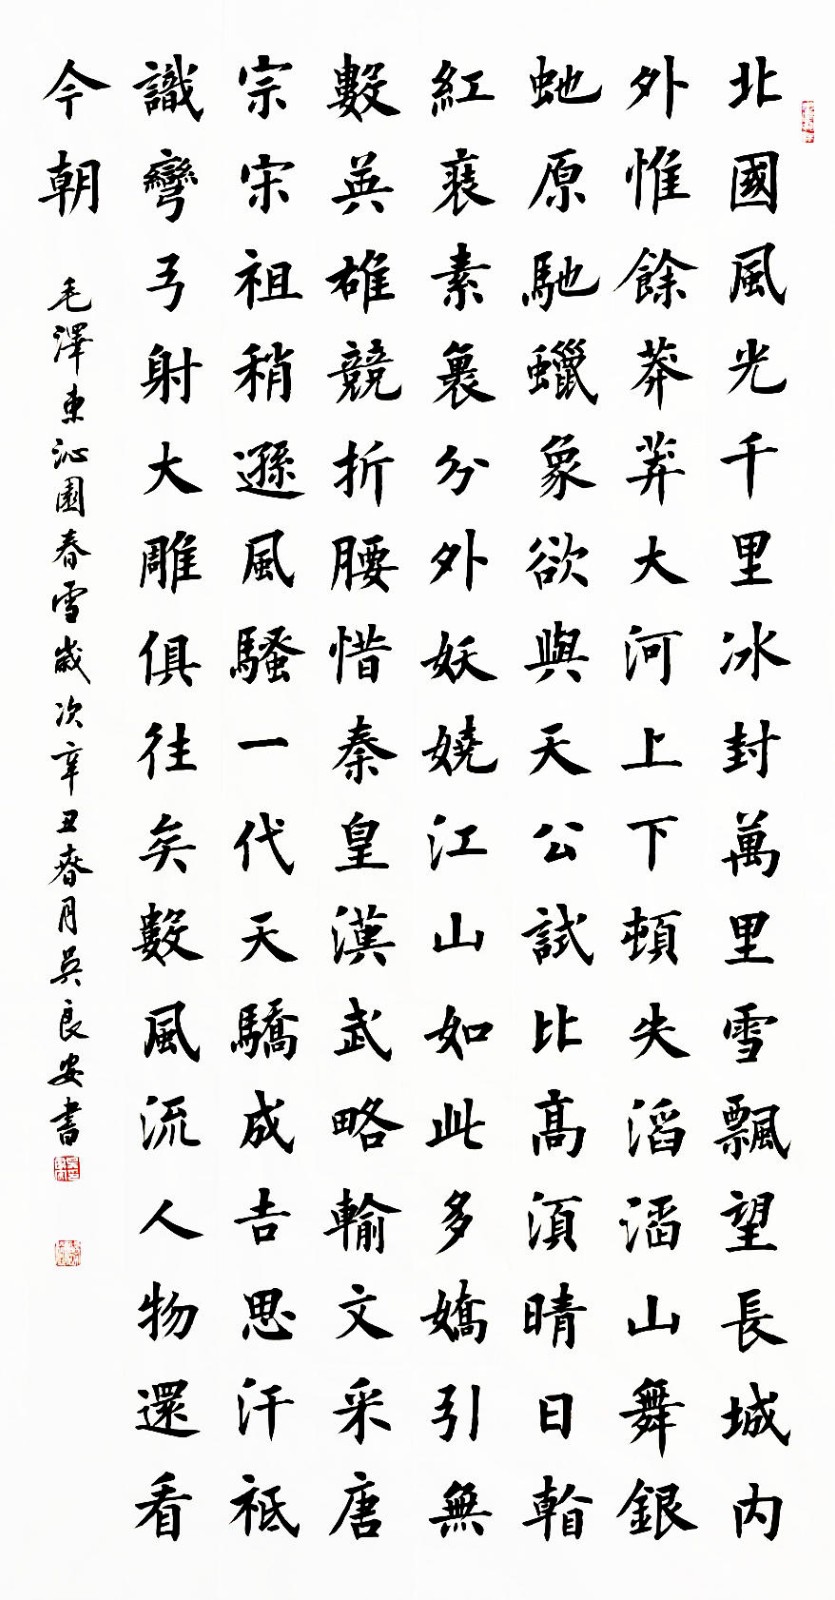 北國風光千里冰封萬里雪飄望長城内
外惟餘莽莽大河上下頓失滔滔山舞銀
虵原馳蠟象欲與天公試比高須晴日
紅素裹分外妖嬈江山如此多嬌引無
數英雄競折腰惜秦皇漢武略輸文采唐
宗宋祖稍遜風騷一代天驕成吉思汗祗
識彎弓射大雕俱往矣數風流人物還看
今朝
毛澤東沁園春雪歲次辛丑春月吳良安書